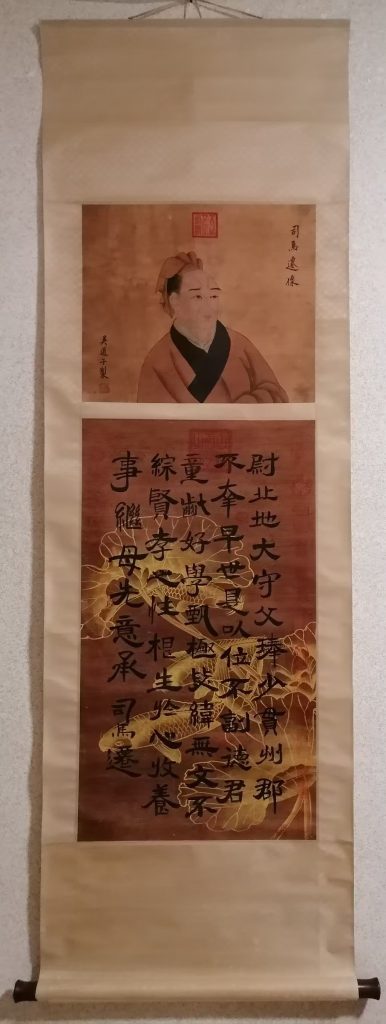 司馬遷像
吳道子製
尉北地大守父琫少貫州郡
不幸早世是以位不副德君
童齔好學甄極毖緯無文不
綜賢孝之性根生於心收養
事繼母先意承 司馬遷